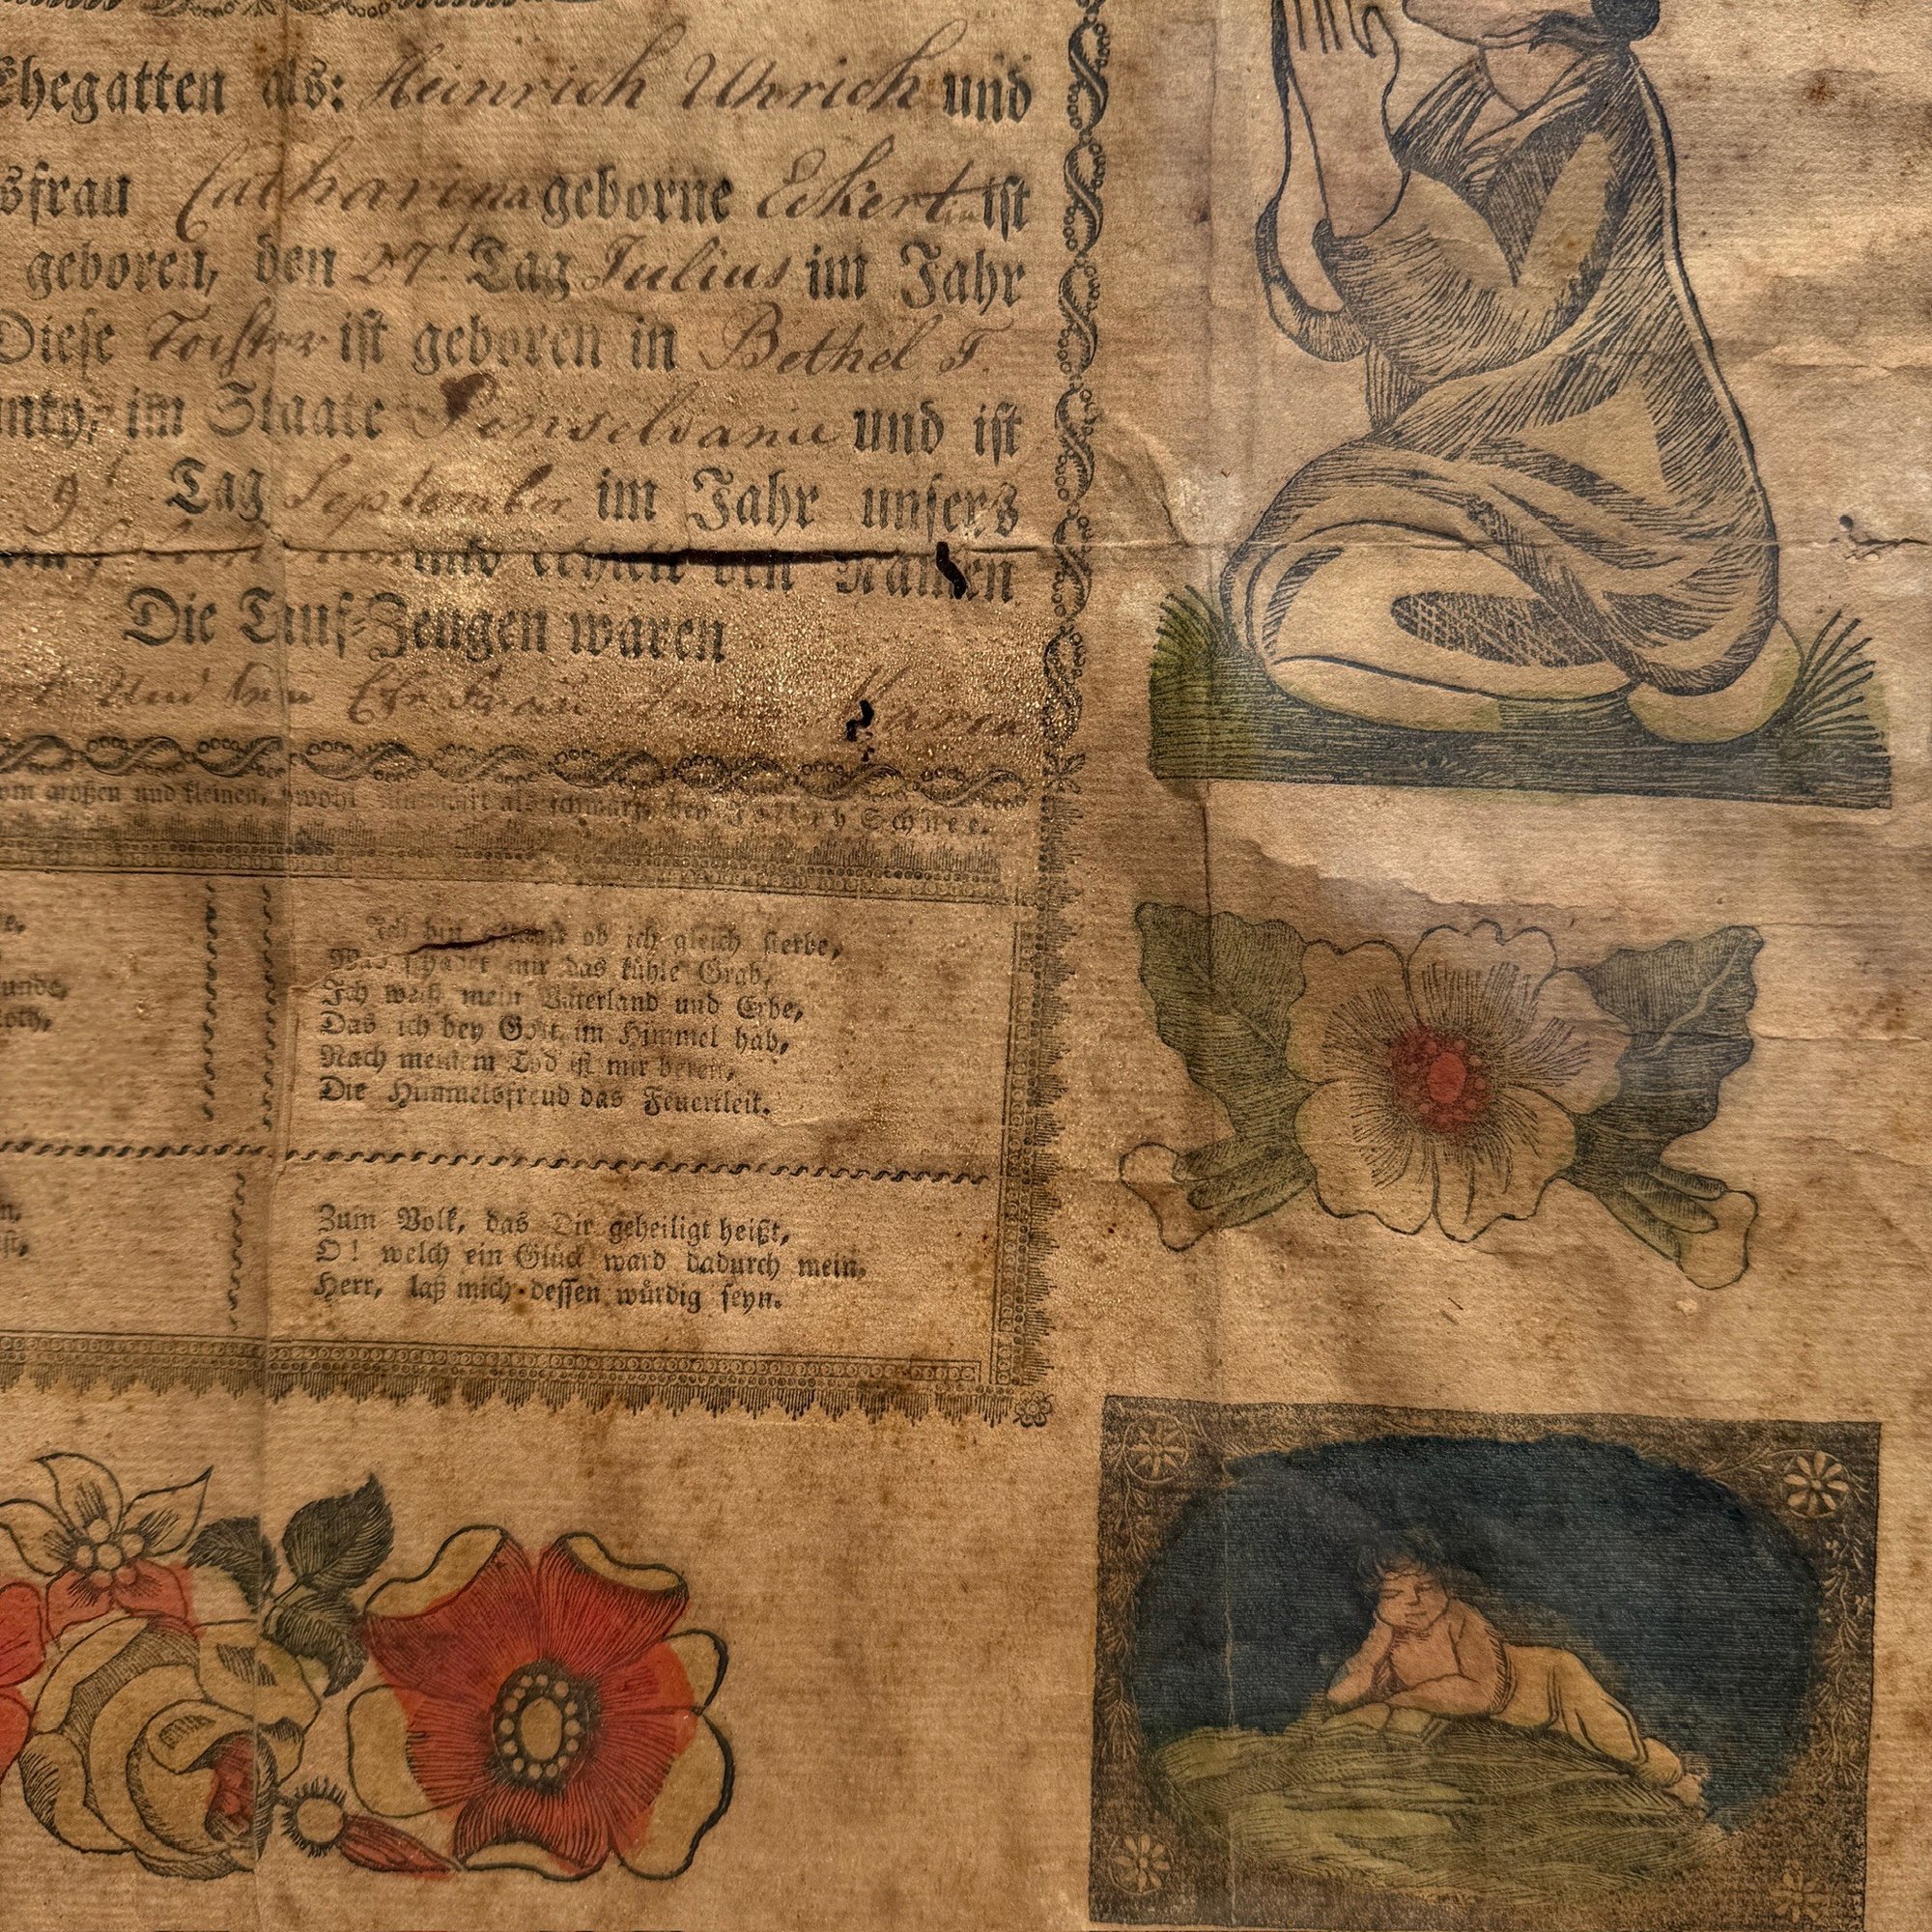 Ehegatten als: Heinrich Uhrich und
sfrau Catharina geborne Eckertin ist
geboren, den 27t Tag Julius im Jahr
Diese Tochter ist geboren in Bethel T.
unty, im Staate Penselvanie und ist
9t Tag September im Jahr unsers
und den Namen
Die Tauf-Zeugen waren
Und Frau Maria
om großen und kleinen, sowohl als schwarz, bey Joseph Schnee.
e.
unde,
oth,
Ich bin getauft ob ich gleich sterbe,
Was schadet mir das kühle Grab,
Ich weiß mein Vaterland und Erbe,
Das ich bey Gott im Himmel hab,
Nach meinem Tod ist mir bereit,
Die Himmelsfreud das Feuerkleit.
n,
st,
Zum Volk, das Dir geheiligt heißt,
O! welch ein Glück ward dadurch mein,
Herr, laß mich dessen würdig seyn.